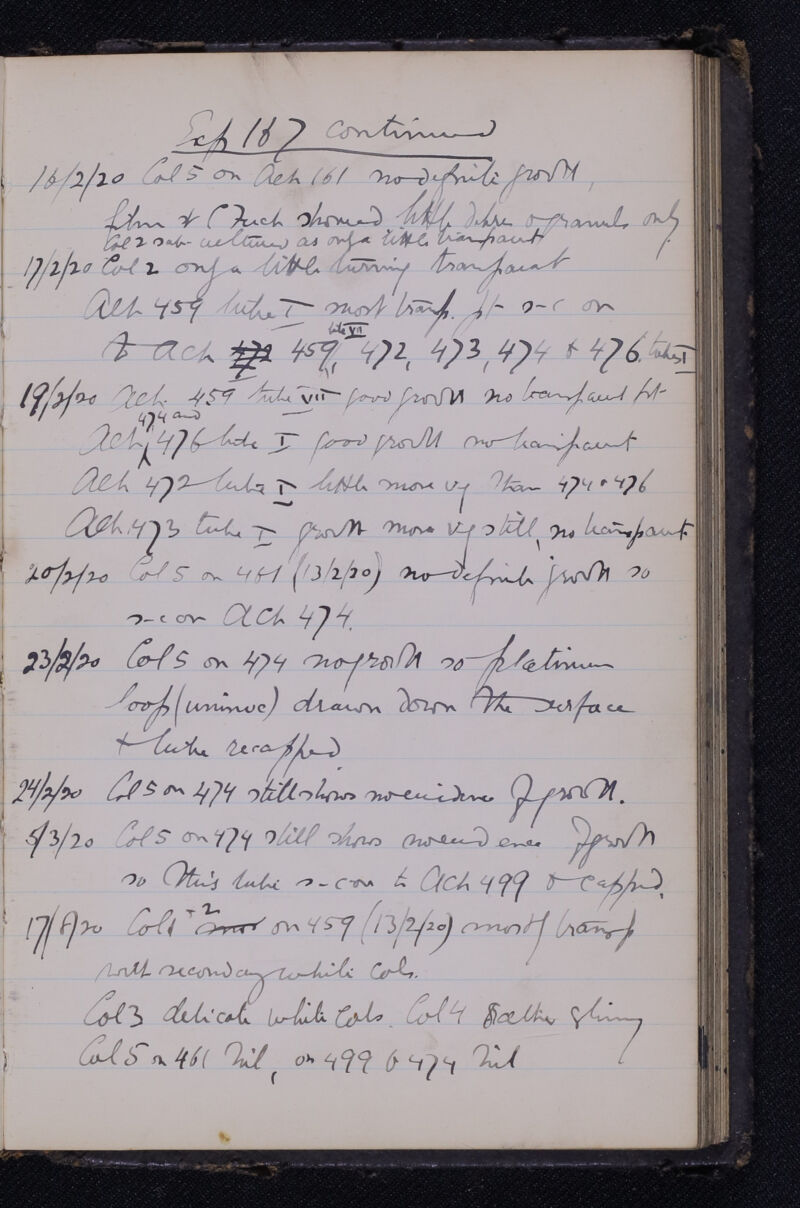 Exp 167 continued
16/2/20 Col 5 on Ach 161 no definite growth,
film & C Fuch showed little debris & granules only
Col 2 sub-cultured as only a little transparent
17/2/20 Col 2 only a little turning transparent
Ach 459 tube I most transp. pt s-c on
to Ach 459 tube VII, 472, 473, 474 & 476. tubes I
19/2/20 Ach 459 tube VII good growth no transparent pt
Ach 474 and 476 tube I good growth no transparent
Ach 472 tube I little more vg than 474 & 476
Ach 473 tube I growth more vg still, no transparent
20/2/20 Col 5 on 461 (13/2/20) no definite growth so
s-c on Ach 474.
23/2/20 Col 5 on 474 no growth so platinum
loop (uninoc) drawn down the surface
& tube recapped
24/2/20 Col 5 on 474 still shows no evidence of growth.
5/3/20 Col 5 on 474 still shows no evidence of growth
so this tube s-c on to Ach 499 & capped.
17/8/20 Col 1 + 2 on 459 (13/2/20) mostly transp
with secondary white cols.
Col 3 delicate white cols. Col 4 rather slimy
Col 5 on 461 Nil, on 499 & 474 Nil